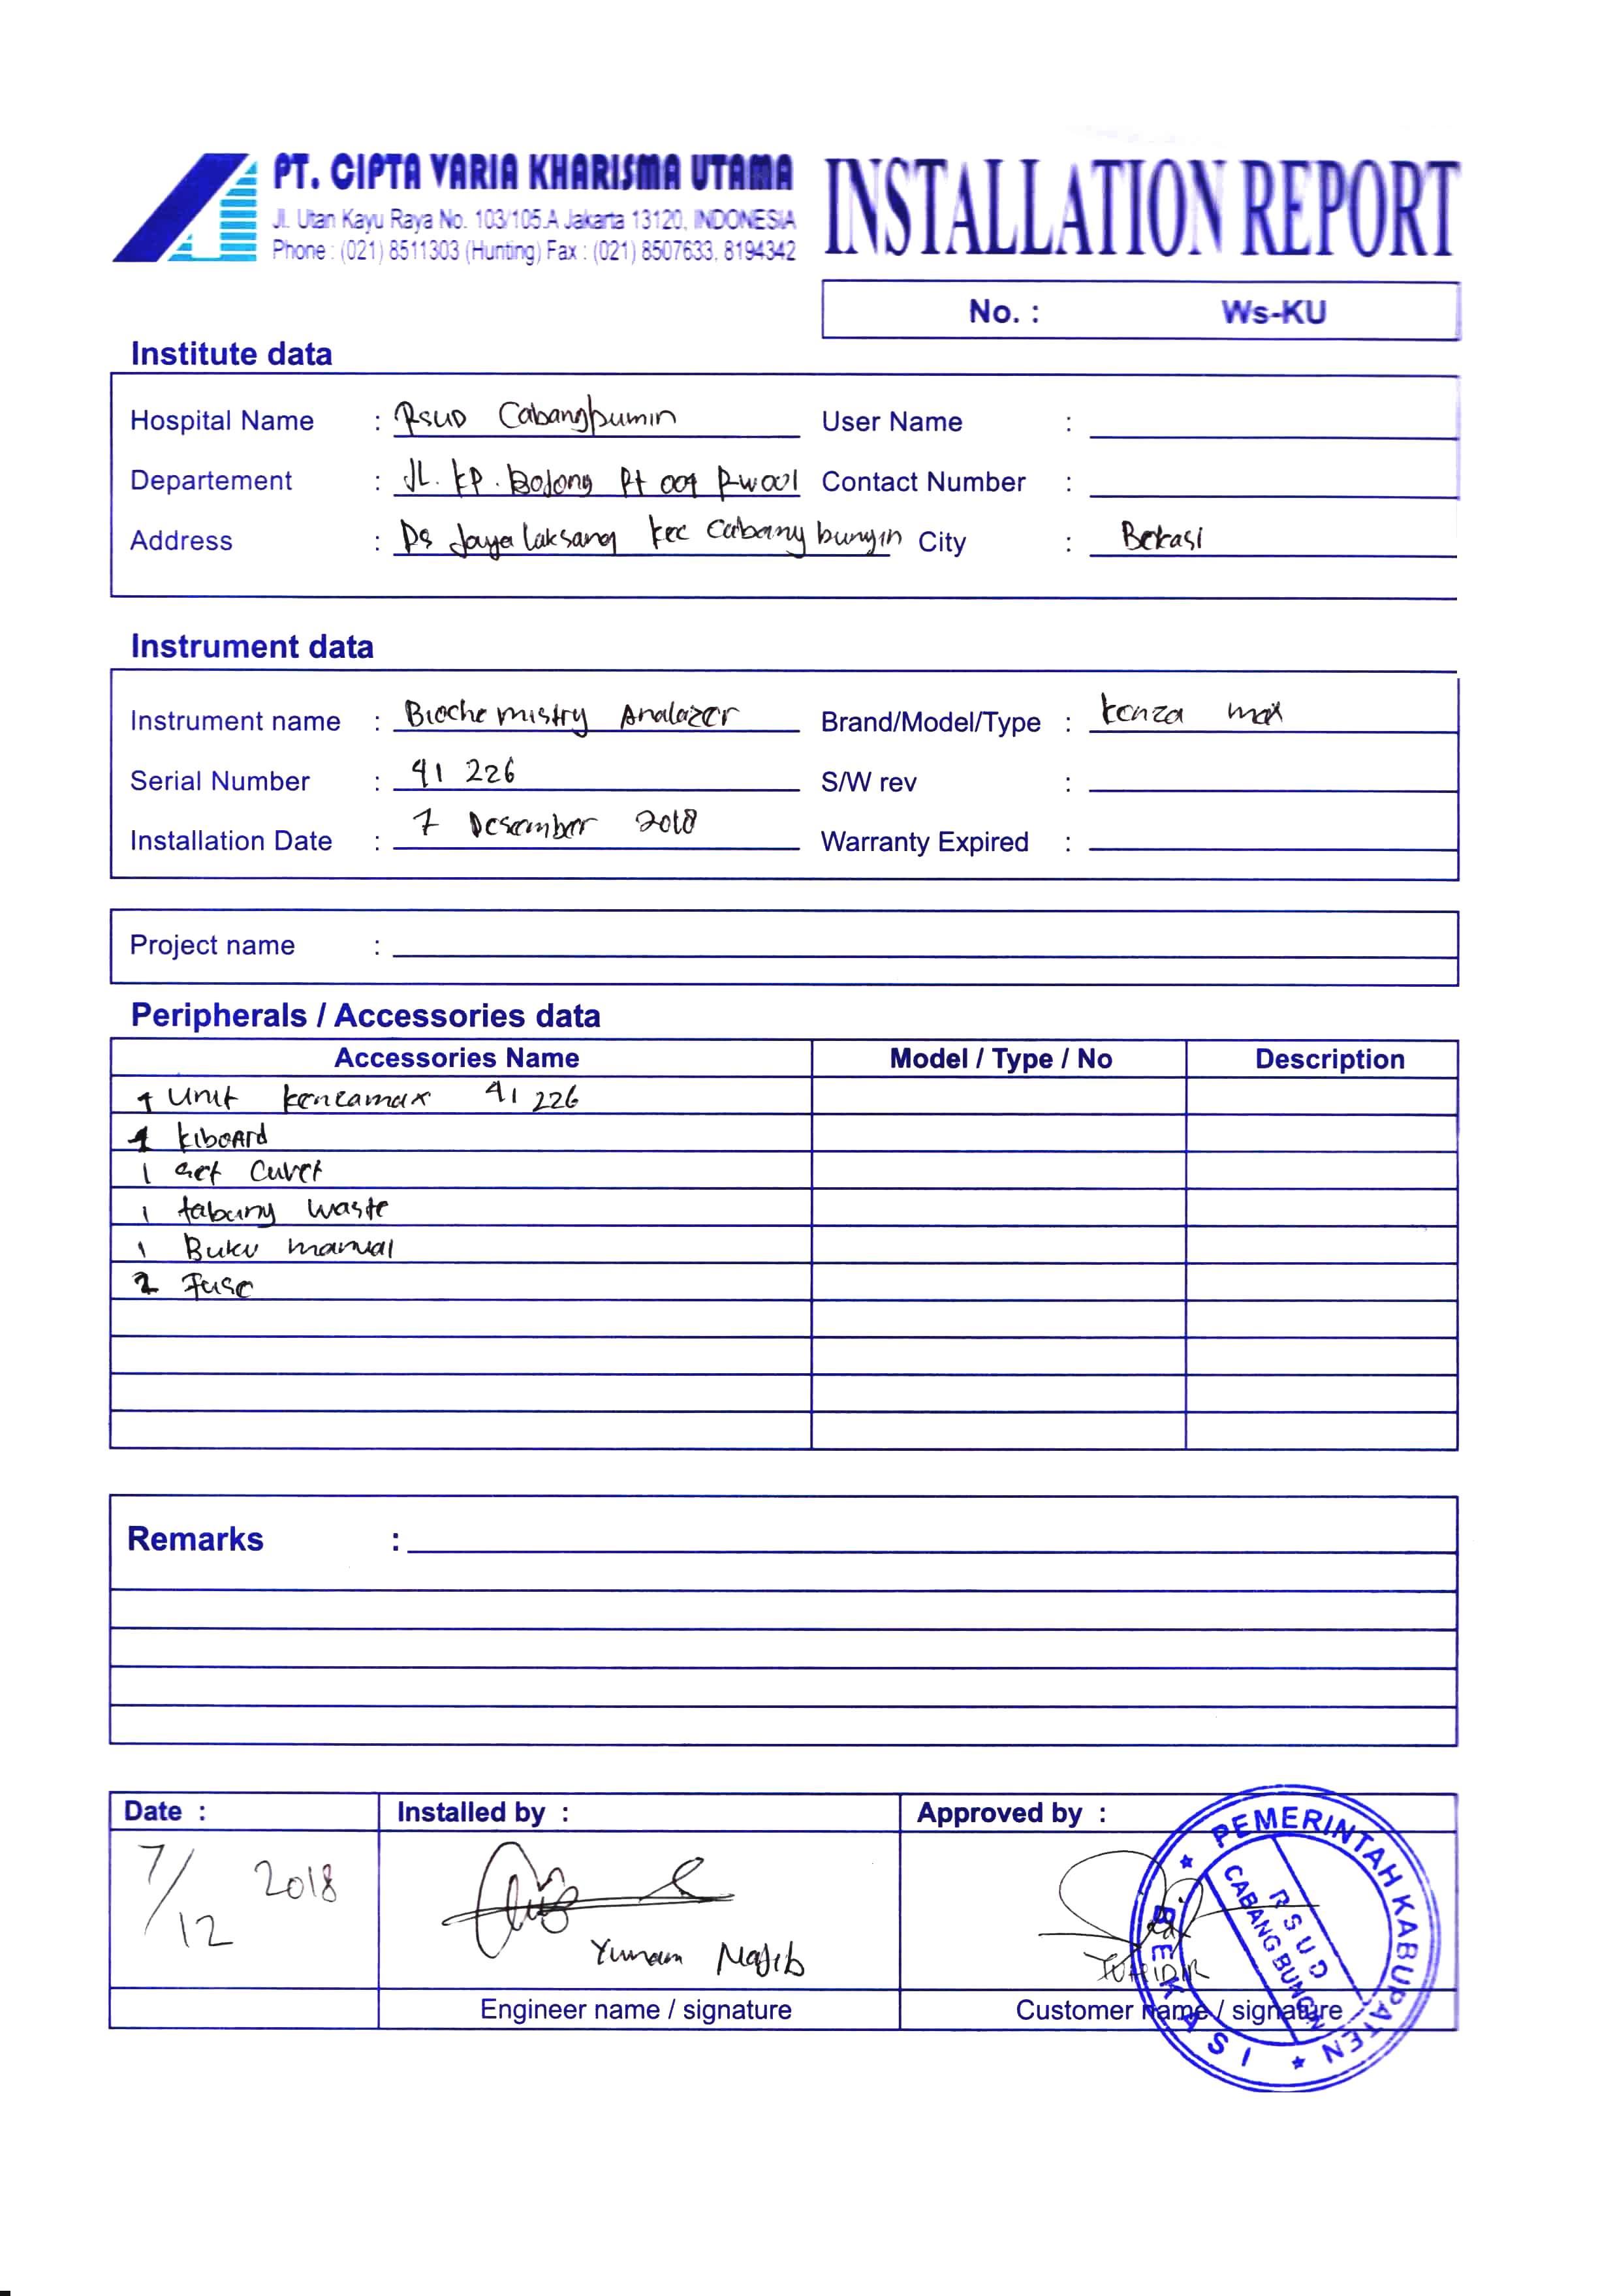 PT. CIPTA VARIA KHARISMA UTAMA
Jl. Utan Kayu Raya No. 103/105.A Jakarta 13120, INDONESIA
Phone : (021) 8511303 (Hunting) Fax : (021) 8507633, 8194342
INSTALLATION REPORT
No. : Ws-KU
Institute data
Hospital Name : RSUD Cabangbumin User Name :
Departement : JL. KP. Bojong Rt 004 Rw001 Contact Number :
Address : Ds Jaya laksana kec Cabang bungin City : Bekasi
Instrument data
Instrument name : Biochemistry Analazer Brand/Model/Type : kenza max
Serial Number : 41 226 S/W rev :
Installation Date : 7 Desember 2018 Warranty Expired :
Project name :
Peripherals / Accessories data
Accessories Name Model / Type / No Description
1 Unit kenzamax 41 226
1 kiboard
1 set Cuvet
1 tabung waste
1 Buku manual
2 Fuse
Remarks :
Date : Installed by : Approved by :
7/12 2018
Najib
Engineer name / signature Customer name / signature
PEMERINTAH KABUPATEN
BEKASI
RSUD
CABANGBUNGIN